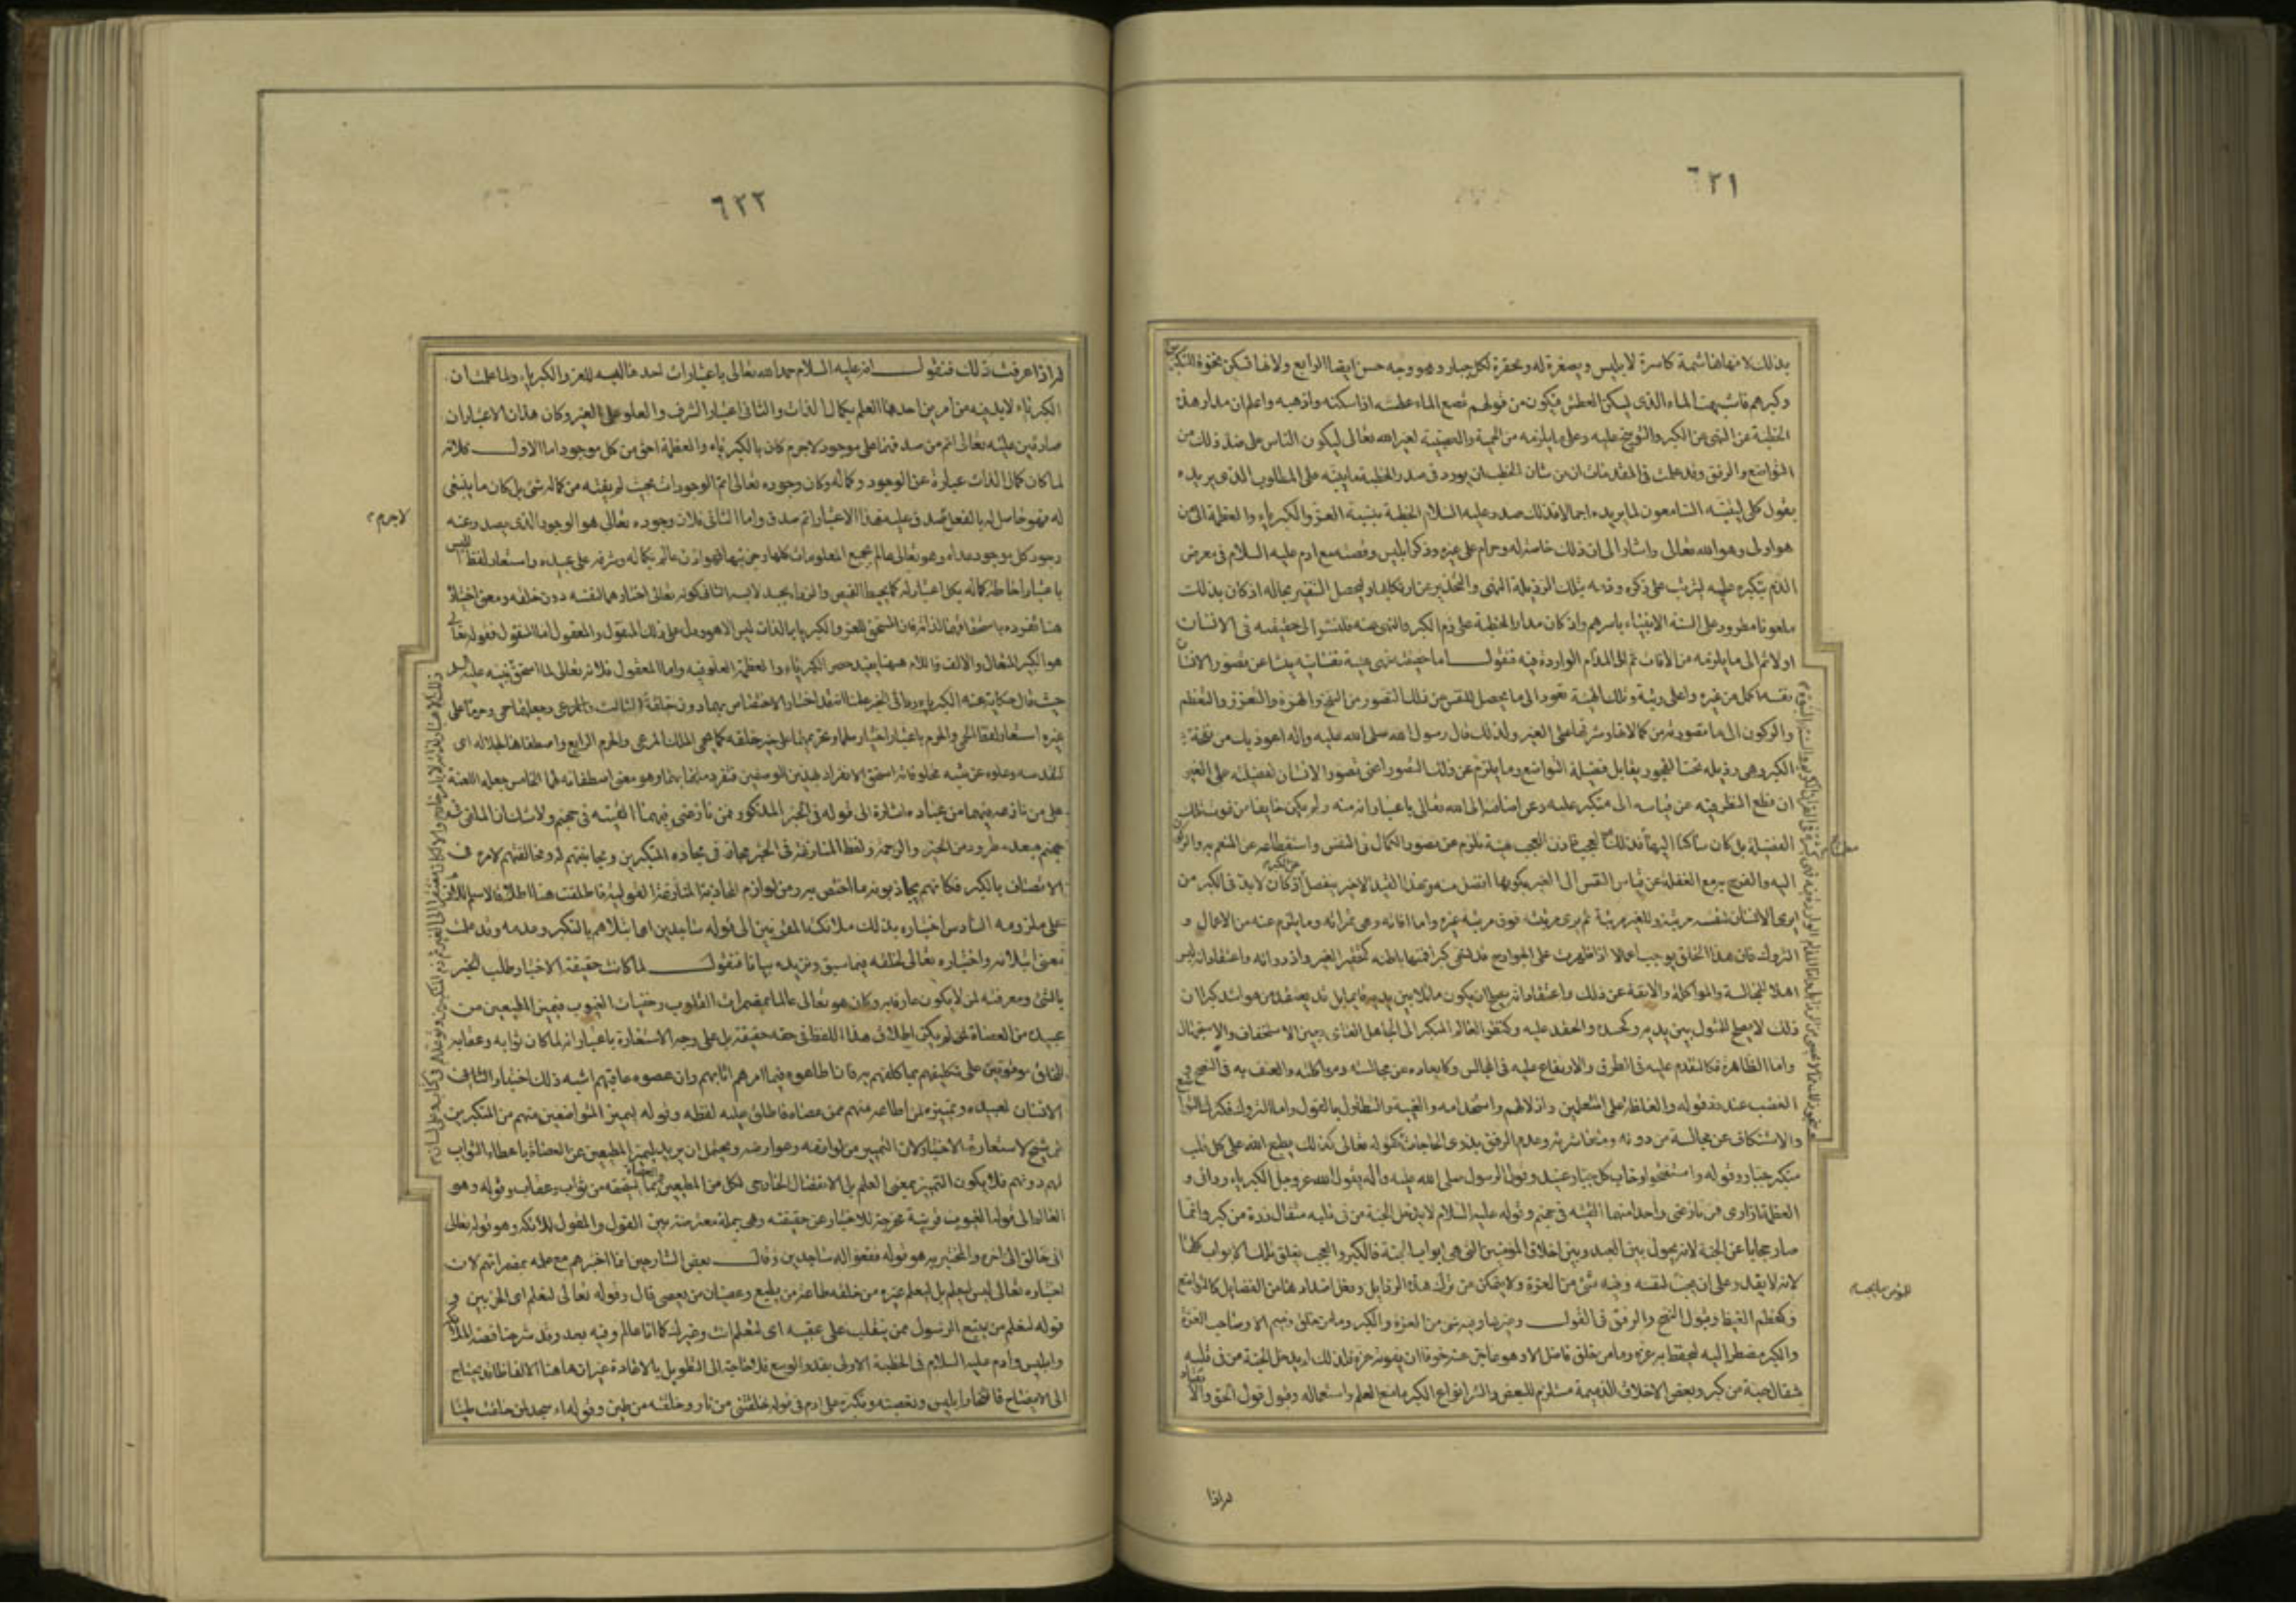 ٦٢١
بذلك لانها هاشمة كاسرة لابليس ومصغرة له ومحقرة لكل جبار وهو وجه حسن ايضا الرابع ولانها تسكن نخوة المتكبرين
وكبرهم فاشبهت الماء الذى يسكن العطش فيكون من قولهم قصع الماء عطشه اذا سكنه واذهبه واعلم ان مدار هذه
الخطبة على النهى عن الكبر والتوبيخ عليه وعلى ما يلزمه من الحمية والعصبية لغير الله تعالى ليكون الناس على ضد ذلك من
التواضع والرفق وقد علمت فى المقدمات ان من شان الخطيب ان يورد فى صدر الخطبة ما ينبه على المطلوب الذى يريده
بقول كلى ليتنبه السامعون لما يريده اجمالا فلذلك صدر عليه السلام الخطبة بنسبة العز والكبرياء والعظمة الى من
هو اولى به وهو الله تعالى واشار الى ان ذلك خاصة له وحرام على غيره وذكر ابليس وقصته مع ادم عليه السلام فى معرض
الذم بتكبره عليه ليترتب على ذكره وذمه بتلك الرذيلة النهى والتحذير عن ارتكابها وليحصل التنفير بحاله اذ كان بذلك
ملعونا مطرودا على السنة الانبياء باسرهم واذ كان مدار الخطبة على ذم الكبر والنهى عنه فلنشر الى حقيقته فى الانسان
اولا ثم الى ما يلزمه من الآفات ثم الى المذام الواردة فيه فنقول اما حقيقته فهى هيئة نفسانية ينشأ عن تصور الانسان
نفسه اكمل من غيره واعلى رتبة وتلك الهيئة تعود الى ما يحصل للنفس عن ذلك التصور من النفخ والهزة والتعزز والتعظم
والركون الى ما تصورته من كمالاتها وشرفها على الغير ولذلك قال رسول الله صلى الله عليه واله اعوذ بك من نفخة
الكبر وهى رذيلة تحت الفجور يقابل فضيلة التواضع وما يلزم عن ذلك التصور اعنى تصور الانسان لفضيلته على الغير
ان قطع النظر فيه عن قياسه الى متكبر عليه وعن اضافته الى الله تعالى باعتبار انه منه ولم يكن خايفا من فوت تلك
الفضيلة بل كان ساكنا اليها فذلك هو العجب فاذن العجب هيئة تلزم عن تصور الكمال فى النفس واستقطاعه عن المنعم به والركون
اليه والفرح به مع الغفلة عن قياس النفس الى الغير بكونها افضل منه وبهذا القيد الاخير ينفصل عن الكبر اذ كان لابد فى الكبر من
ان يرى الانسان لنفسه مرتبة وللغير مرتبة ثم يرى مرتبته فوق مرتبة غيره واما آفاته وهى ثمراته وما يلزم عنه من الاعمال و
التروك فان هذا الخلق يوجب اعمالا اذا ظهرت على الجوارح قد تسمى كبرا فمنها باطنة كتحقير الغير وازدرائه واعتقاد انه ليس
اهلا للمجالسة والمواكلة والانفة عن ذلك واعتقاد انه يصلح ان يكون ماثلا بين يديه قايما بل قد يعتقد من هو اشد كبرا ان
ذلك لا يصلح للمثول بين يديه وكحسده والحقد عليه وكنظر العالم المتكبر الى الجاهل العامى بعين الاستخفاف والاستجهال
واما الظاهرة فكالتقدم عليه فى الطرق والارتفاع عليه فى المجالس وكابعاده عن مجالسته ومواكلته والعنف به فى النصح و
الغضب عند رد قوله والغلظة على المتعلمين واذلالهم واستخدامهم والغيبة والتطاول بالقول واما التروك فكترك التواضع
والاستنكاف عن مجالسة من دونه ومعاشرته وعدم الرفق بذوى الحاجات كقوله تعالى كذلك يطبع الله على كل قلب
متكبر جبار وقوله واستفتحوا وخاب كل جبار عنيد وقول الرسول صلى الله عليه وآله يقول الله عز وجل الكبرياء ردائى و
العظمة ازارى فمن نازعنى واحدا منهما القيته فى جهنم وقوله عليه السلام لا يدخل الجنة من فى قلبه مثقال ذرة من كبر وانما
صار حجابا عن الجنة لانه يحول بين العبد وبين اخلاق المؤمنين التى هى ابواب الجنة فالكبر والعجب يغلق تلك الابواب كلها
لانه لا يقدر على ان يحب لنفسه وفيه شئ من العزة ولا يتمكن من ترك هذه الرذايل وفعل اضدادها من الفضايل كالتواضع
وكظم الغيظ وقبول النصح والرفق فى القول وغيرها وفيه شئ من العزة والكبر وما من خلق ذميم الا وصاحب العزة
والكبر مضطر اليه ليحفظ به عزه وما من خلق فاضل الا وهو عاجز عنه خوفا ان يفوته عزه فلذلك لم يدخل الجنة من فى قلبه
مثقال حبة من كبر وبعض الاخلاق الذميمة مستلزم للبعض والشر انواع الكبر ما منع العلم واستعماله وقبول قول الحق والانقياد
للمؤمن ما يحبه
له اذا
٦٢٢
له اذا عرفت ذلك فنقول انه عليه السلام حمد الله تعالى باعتبارات احدها لبسه للعز والكبرياء ولما علمت ان
الكبرياء لابد فيه من امرين احدهما العلم بكمال الذات والثانى اعتبار الشرف والعلو على الغير وكان هذان الاعتباران
صادقين عليه تعالى اتم من صدقهما على موجود لا جرم كان بالكبرياء والعظمة احق من كل موجود اما الاول فلانه
لما كان كمال الذات عبارة عن الوجود وكماله وكان وجوده تعالى اتم الوجودات بحيث لم يفته من كماله شئ بل كان ما ينبغى
له فهو حاصل له بالفعل صدق عليه هذا الاعتبار اتم صدق واما الثانى فلان وجوده تعالى هو الوجود الذى يصدر عنه
وجود كل موجود عداه وهو تعالى عالم بجميع المعلومات كلها وجزئيها فهو اذن عالم بكماله وشرفه على عبيده واستعار لفظ اللبس
باعتبار احاطة كماله بكل اعتبار له كما يحيط القميص والرداء بجسد لابسه الثانى كونه تعالى اختارهما لنفسه دون خلقه ومعنى اختياره
هنا تفرده باستحقاقهما لذاته فان المستحق للعز والكبرياء بالذات ليس الا هو ودل على ذلك المنقول والمعقول اما المنقول فقوله تعالى
هو الكبير المتعال والالف واللام ههنا يفيد حصر الكبرياء والعظمة والعلو فيه واما المعقول فلانه تعالى لما استحق
حيث قال حكاية عنه الكبرياء ردائى الخبر علمنا انه قد اختار الاختصاص بهما دون خلقه الثالث وجعلهما حمى وحرما على
غيره استعار لفظ الحمى والحرم باعتبار اختياره لهما وتحريمهما على غيره من خلقه كما يحمى الملك المرعى والحرم الرابع واصطفاهما لجلاله اى
لتقدسه وعلوه عن شبه مخلوقاته استحق الانفراد بهذين الوصفين فتفرد بهما وهو معنى اصطفائه لهما الخامس جعله اللعنة
على من نازعه فيهما من عباده اشارة الى قوله فى الخبر المذكور فمن نازعنى فيهما القيته فى جهنم ولا شك ان الملقى فى
جهنم مبعد مطرود من الخير والرحمة ولفظ المنازعة فى الخبر مجاز فى محادة المتكبرين ومجانبتهم له ومخالفتهم لامره فى
الاتصاف بالكبر فكانهم يجاذبونه ما اختص به ومن لوازم المجاذبة المنازعة القولية فاطلقت هنا اطلاقا لاسم اللازم
على ملزومه السادس اختباره بذلك ملائكته المقربين الى قوله ساجدين اى ابتلاهم بالتكبر وعدمه وقد علمت
معنى ابتلائه واختباره تعالى لخلقه فيما سبق ونزيده بيانا فنقول لما كانت حقيقة الاختبار طلب الخبر
بالشئ ومعرفته لمن لا يكون عارفا به وكان هو تعالى عالما بمضمرات القلوب وخفيات الغيوب فيميز المطيعين من
عبيده من العصاة له لم يكن اطلاق هذا اللفظ فى حقه حقيقة بل على وجه الاستعارة باعتبار انه لما كان ثوابه وعقابه
للخلق موقوفين على تكليفهم بما كلفهم به فان اطاعوه فيما امرهم اثابهم وان عصوه عاقبهم اشبه ذلك اختبار
الانسان لعبيده وتمييزه لمن اطاعه منهم ممن عصاه فاطلق عليه لفظه وقوله ليميز المتواضعين منهم من المتكبرين
ترشيح لاستعارة الاختبار لان التمييز من لوازمه وعوارضه ويحتمل ان يريد ليميز المطيعين عن العصاة باعطاء الثواب
لهم دونهم فلا يكون التمييز بمعنى العلم بل الانفصال الخارجى لكل من المطيعين والعصاة بما يستحقه من ثواب وعقاب وقوله وهو
العالم الى قوله الغيوب قرينة مخرجة للاختبار عن حقيقته وهى جملة معترضة بين القول والمقول للملائكة وهو قوله تعالى
انى خالق الى آخره والمختبر به هو قوله فقعوا له ساجدين وقال بعض الشارحين انما اختبرهم مع علمه بمضمراتهم لان
اختباره تعالى ليس ليعلم بل ليعلم غيره من خلقه طاعة من يطيع وعصيان من يعصى قال وقوله تعالى لنعلم اى الحزبين و
قوله لنعلم من يتبع الرسول ممن ينقلب على عقبيه اى لتعلم انت وغيرك كا انا عالم وفيه بعد وقد شرحنا قصة الملائكة
وابليس وادم عليه السلام فى الخطبة الاولى بقدر الوسع فلا حاجة الى التطويل بالاعادة غير ان هاهنا الفاظا قد يحتاج
الى الايضاح فافتخار ابليس وتعصبه وتكبره على ادم فى قوله خلقتنى من نار وخلقته من طين وقوله اء سجد لمن خلقت طينا
لاجرم